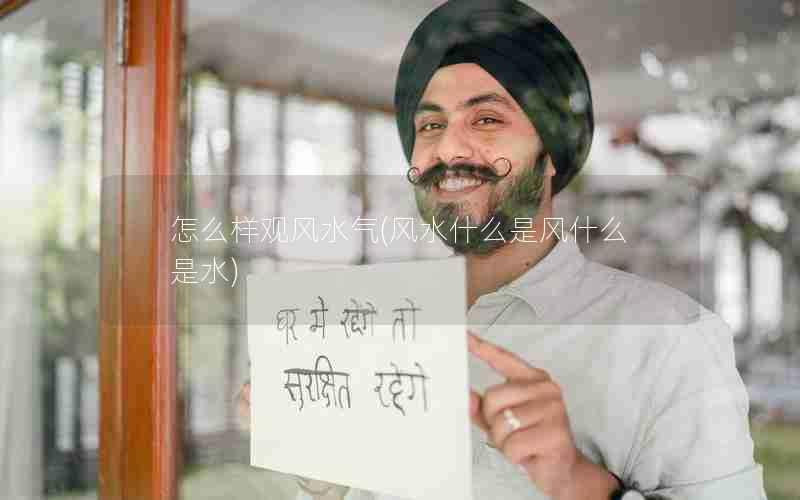 怎么样观风水气(风水什么是风什么
是水)
घर मे रहेंगे तो
सुरक्षित रहेगे